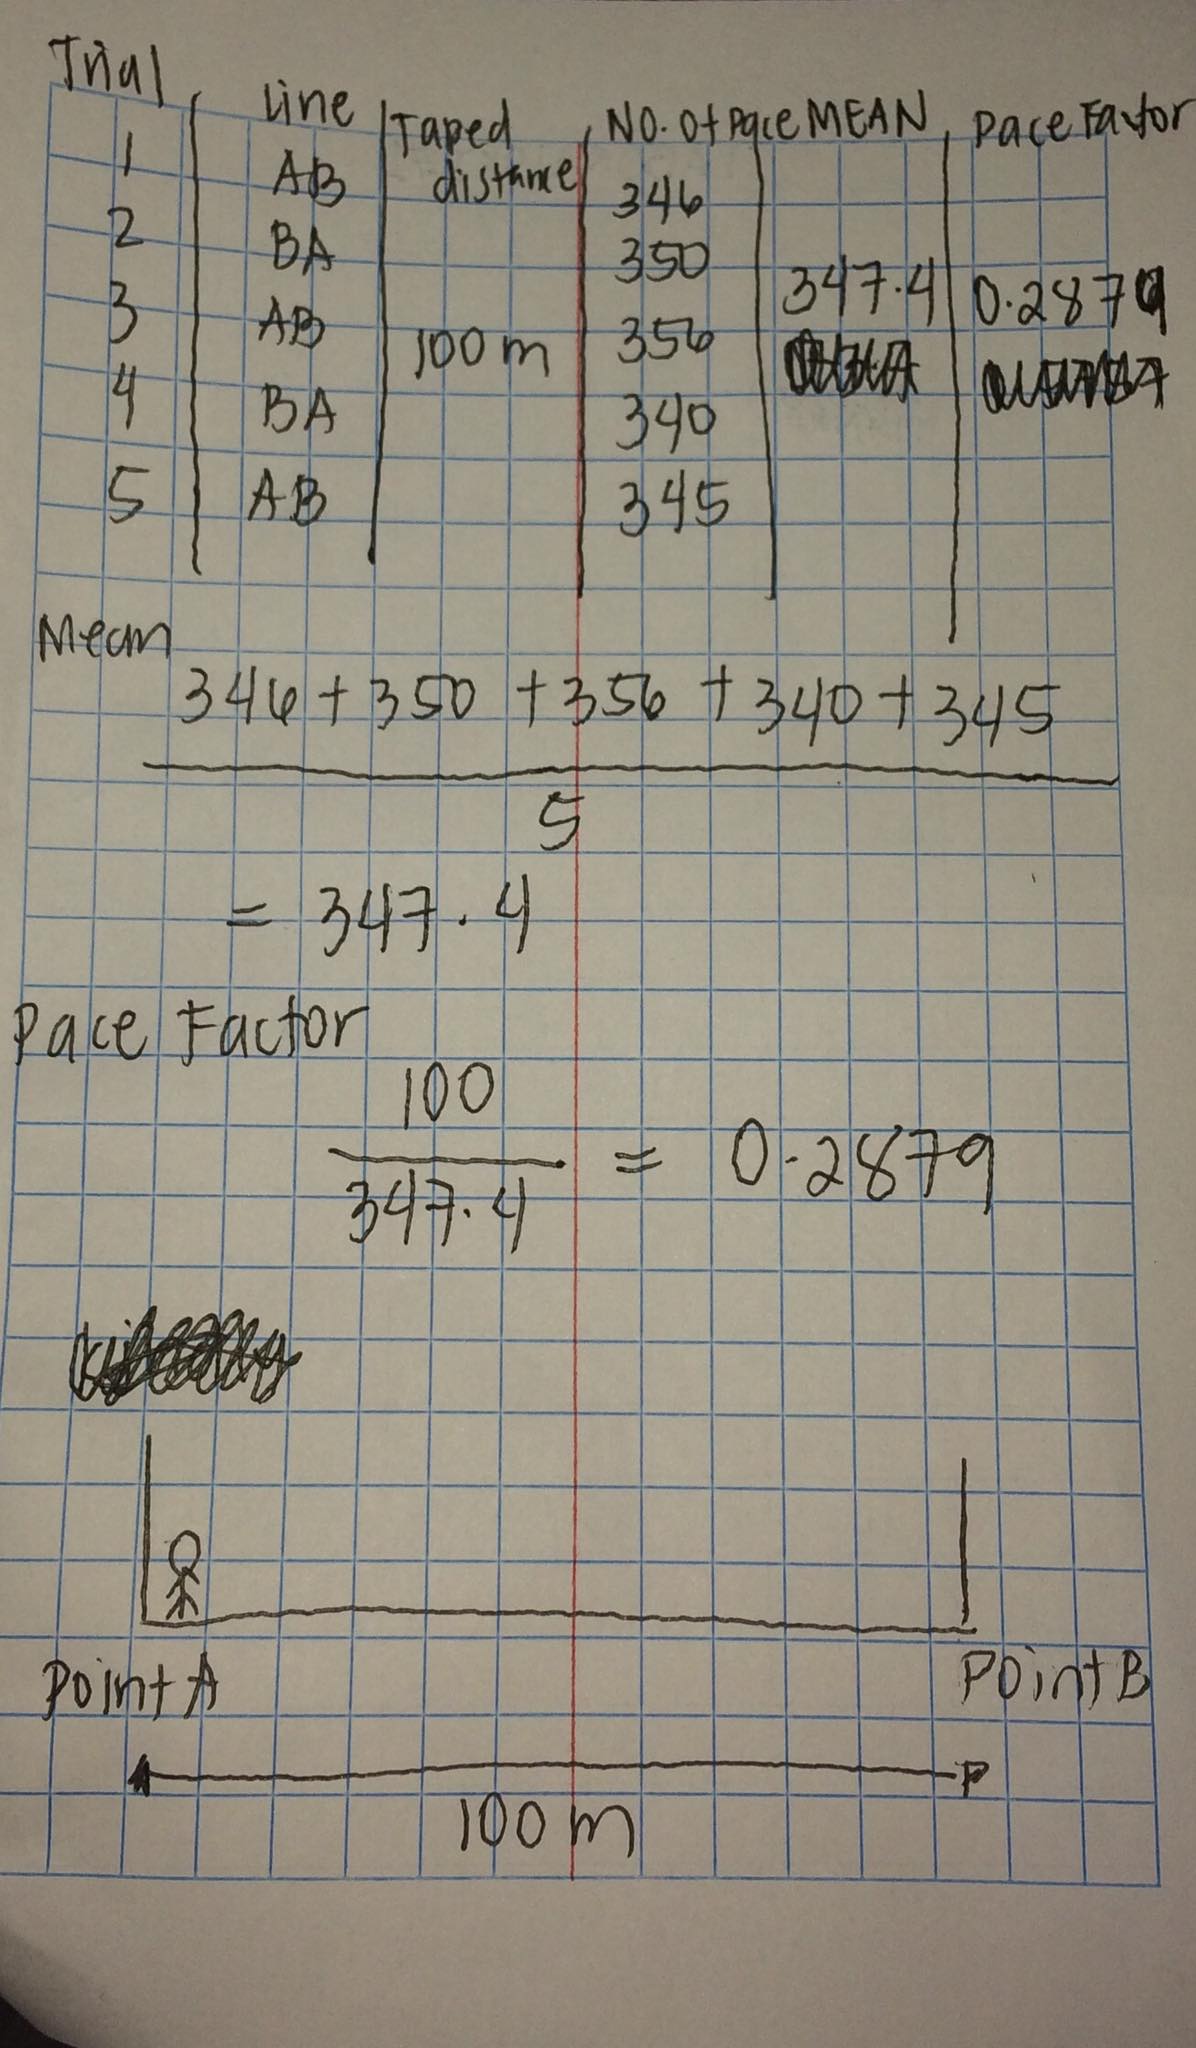 Trial Line Taped distance No. of Pace MEAN Pace Factor
1 AB 346
2 BA 350 347.4 0.2879
3 AB 100 m 356
4 BA 340
5 AB 345
Mean
346 + 350 + 356 + 340 + 345
5
= 347.4
Pace Factor
100
347.4
= 0.2879
Point A Point B
100 m